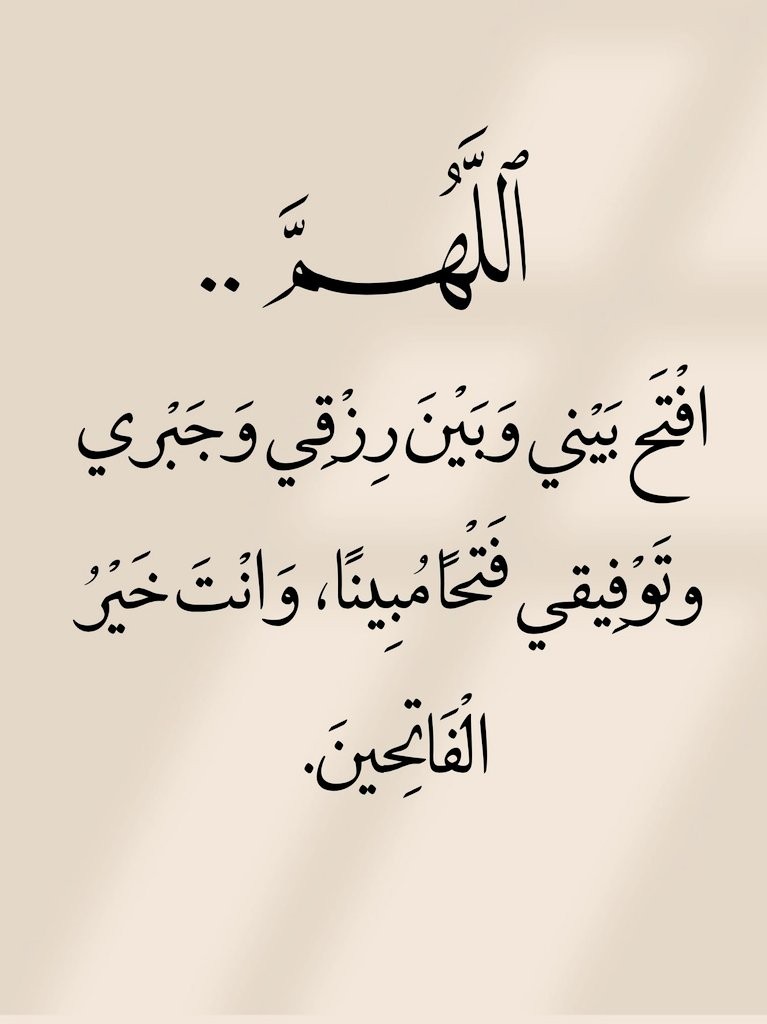 ٱللَّهُمَّ ..
افْتَح بَيْني وَبَيْنَ رِزْقِي وَجَبْري
وتَوْفِيقي فَتْحًا مُبِينًا، وَانْتَ خَيْرُ
الْفَاتِحِينَ.